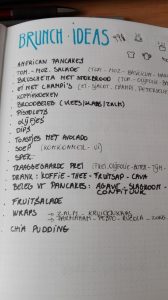 BRUNCH · IDEAS
AMERICAN PANCAKES
TOM-MOZ. SALADE (TOM - MOZ - BASILICUM -
BRUSCHETTA MET STOKBROOD (TOM - OLIJFOLIE -
EI MET CHAMPI'S (EI - SJALOT - CHAMPI, PETERSELIE
KOFFIEKOEKEN
BROODBELEG (VLEES/KAAS/ZALM)
PISTOLETS
OLIJFJES
DIPS
TOASTJES MET AVOCADO
SOEP (KOMKOMMER - UI)
SPEK
TRAAGGEGAARDE PREI (PREI, OLIJFOLIE, BOTER, TIJM
DRANK: KOFFIE - THEE - FRUITSAP - CAVA
BELEG VR PANCAKES: AGAVE - SLAGROOM -
CONFITUUR
FRUITSALADE
WRAPS → ZALM - KRUIDENKAAS
→ PARMAHAM - PESTO - RUCOLA -
CHIA PUDDING